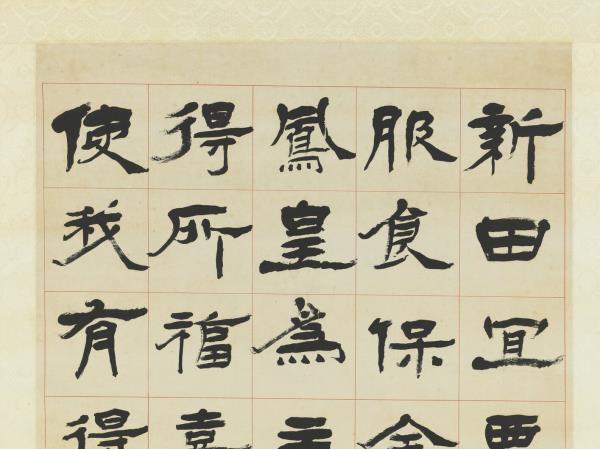 新田宜
服食保
鳳皇為
得所福喜
使我有得